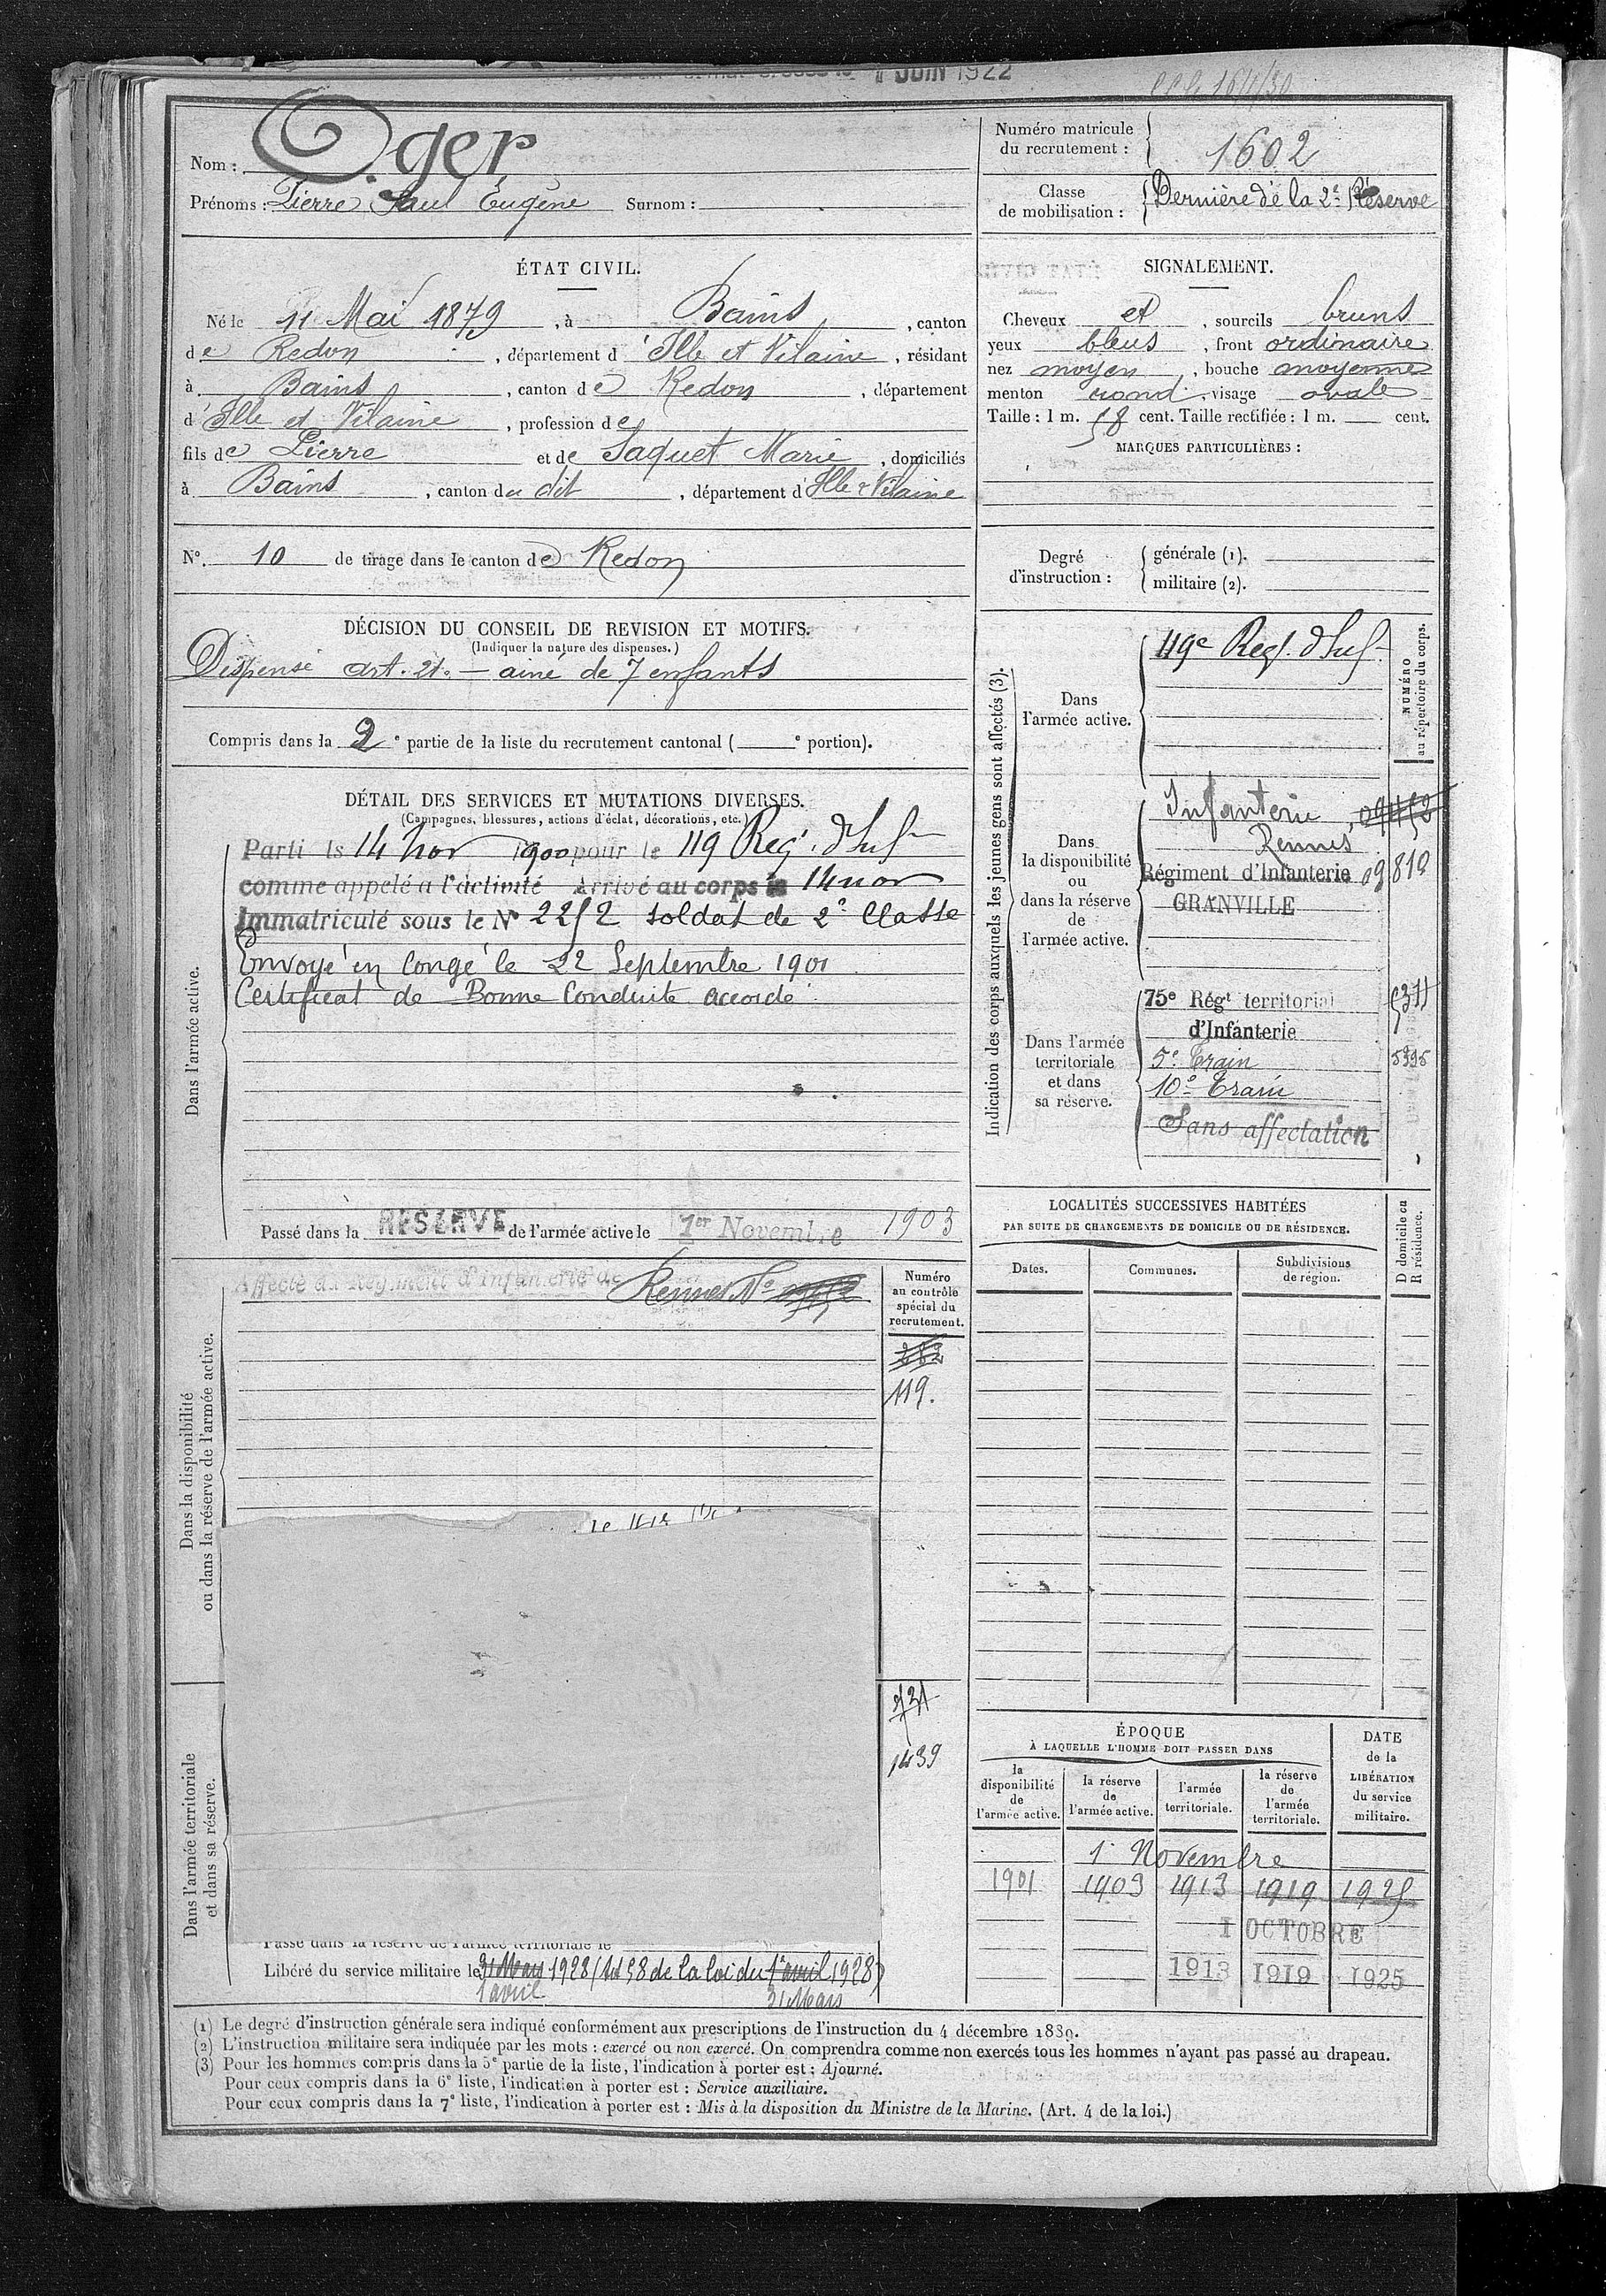 JUIN 1922
Nom : Oger
Prénoms : Pierre Paul Eugène Surnom :
Numéro matricule du recrutement : 1602
Classe de mobilisation : Dernière de la 2e Réserve
ÉTAT CIVIL.
Né le 11 Mai 1879, à Bains, canton
de Redon, département d'Ille et Vilaine, résidant
à Bains, canton de Redon, département
d'Ille et Vilaine, profession de
fils de Pierre et de Saquet Marie, domiciliés
à Bains, canton du dit, département d'Ille & Vilaine
SIGNALEMENT.
Cheveux et, sourcils bruns
yeux bleus, front ordinaire
nez moyen, bouche moyenne
menton rond, visage ovale
Taille : 1 m. 58 cent. Taille rectifiée : 1 m. cent.
MARQUES PARTICULIÈRES :
N°. 10 de tirage dans le canton de Redon
Degré d'instruction :
générale (1).
militaire (2).
DÉCISION DU CONSEIL DE REVISION ET MOTIFS.
(Indiquer la nature des dispenses.)
Dispensé art. 21. — ainé de 7 enfants
Compris dans la 2e partie de la liste du recrutement cantonal ( e portion).
DÉTAIL DES SERVICES ET MUTATIONS DIVERSES.
(Campagnes, blessures, actions d'éclat, décorations, etc.)
Dans l'armée active.
Parti le 14 nov 1900 pour le 119 Reg. d'Inf
comme appelé a l'activité Arrivé au corps le 14 nov
Immatriculé sous le N° 2252 soldat de 2e Classe
Envoyé en congé le 22 Septembre 1901
Certificat de Bonne Conduite accordé
Passé dans la RESERVE de l'armée active le 1er Novembre 1903
Indication des corps auxquels les jeunes gens sont affectés (3).
NUMÉRO au répertoire du corps.
Dans l'armée active.
119e Reg. d'Inf
Dans la disponibilité ou dans la réserve de l'armée active.
Infanterie
Rennes
Régiment d'Infanterie 09810
GRANVILLE
Dans l'armée territoriale et dans sa réserve.
75e Régt territorial
d'Infanterie
5e Train 5395
10e Train
Sans affectation
Dans la disponibilité ou dans la réserve de l'armée active.
Affecté au Régiment d'Infanterie de Rennes No
Numéro au contrôle spécial du recrutement.
119.
1439
LOCALITÉS SUCCESSIVES HABITÉES
PAR SUITE DE CHANGEMENTS DE DOMICILE OU DE RÉSIDENCE.
Dates.
Communes.
Subdivisions de région.
D domicile ou R résidence.
Dans l'armée territoriale et dans sa réserve.
Passé dans la réserve de l'armée territoriale le
Libéré du service militaire le 31 Mars 1928 (Art 58 de la loi du 1er avril 1928)
1 avril 31 Mars
ÉPOQUE
À LAQUELLE L'HOMME DOIT PASSER DANS
la disponibilité de l'armée active.
la réserve de l'armée active.
l'armée territoriale.
la réserve de l'armée territoriale.
DATE de la LIBÉRATION du service militaire.
1er Novembre
1901 1903 1913 1919 1925
1 OCTOBRE
1913 1919 1925
(1) Le degré d'instruction générale sera indiqué conformément aux prescriptions de l'instruction du 4 décembre 1889.
(2) L'instruction militaire sera indiquée par les mots : exercé ou non exercé. On comprendra comme non exercés tous les hommes n'ayant pas passé au drapeau.
(3) Pour les hommes compris dans la 5e partie de la liste, l'indication à porter est : Ajourné.
Pour ceux compris dans la 6e liste, l'indication à porter est : Service auxiliaire.
Pour ceux compris dans la 7e liste, l'indication à porter est : Mis à la disposition du Ministre de la Marine. (Art. 4 de la loi.)